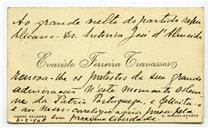 Ao grande vulto do partido repu-
blicano - Dr. Antonio José d'Almeida
Evaristo Ferreira Travassos
renova-lhe os protestos de sua grande
admiração N'este momento solem-
ne da Patria Portugueza, e felicita-o
ao seu
sua proxima liberdade.
PONTA DELGADA